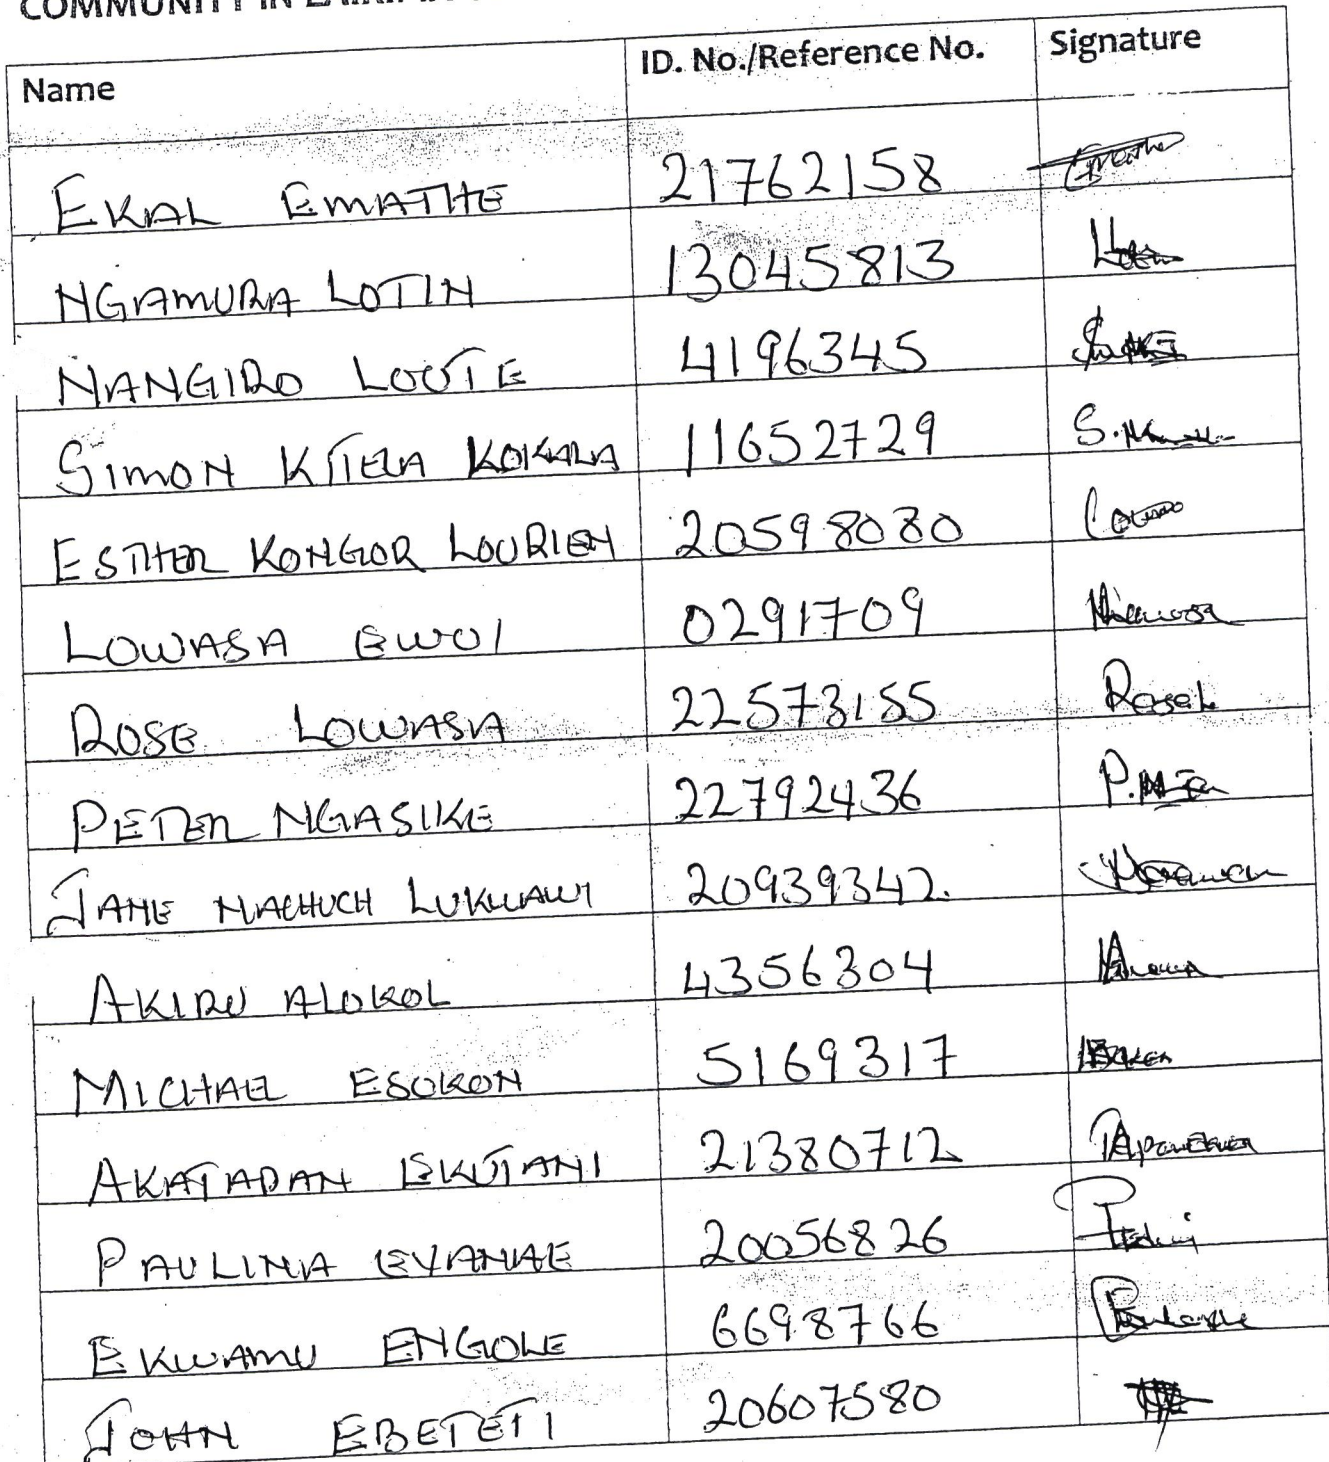 COMMUNITY IN
Name ID. No./Reference No. Signature
EKAL EMATHE 21762158
NGAMURA LOTIN 13045813
NANGIRO LOUTE 4196345
SIMON KITELA KOKALA 11652729 S.
ESTHER KONGOR LOURIEN 20598080
LOWASA EWOI 0291709
ROSE LOWASA 22573155 Rose L
PETER NGASIKE 22792436 P.
JANE NACHUCH LUKWAWI 20939342.
AKIRU ALOKOL 4356304
MICHAEL ESOKON 5169317
AKATADAN EKUTANI 21380712
PAULINA EYANAE 20056826
EKWAMU ENGOLE 6698766
JOHN EBETETI 20607580